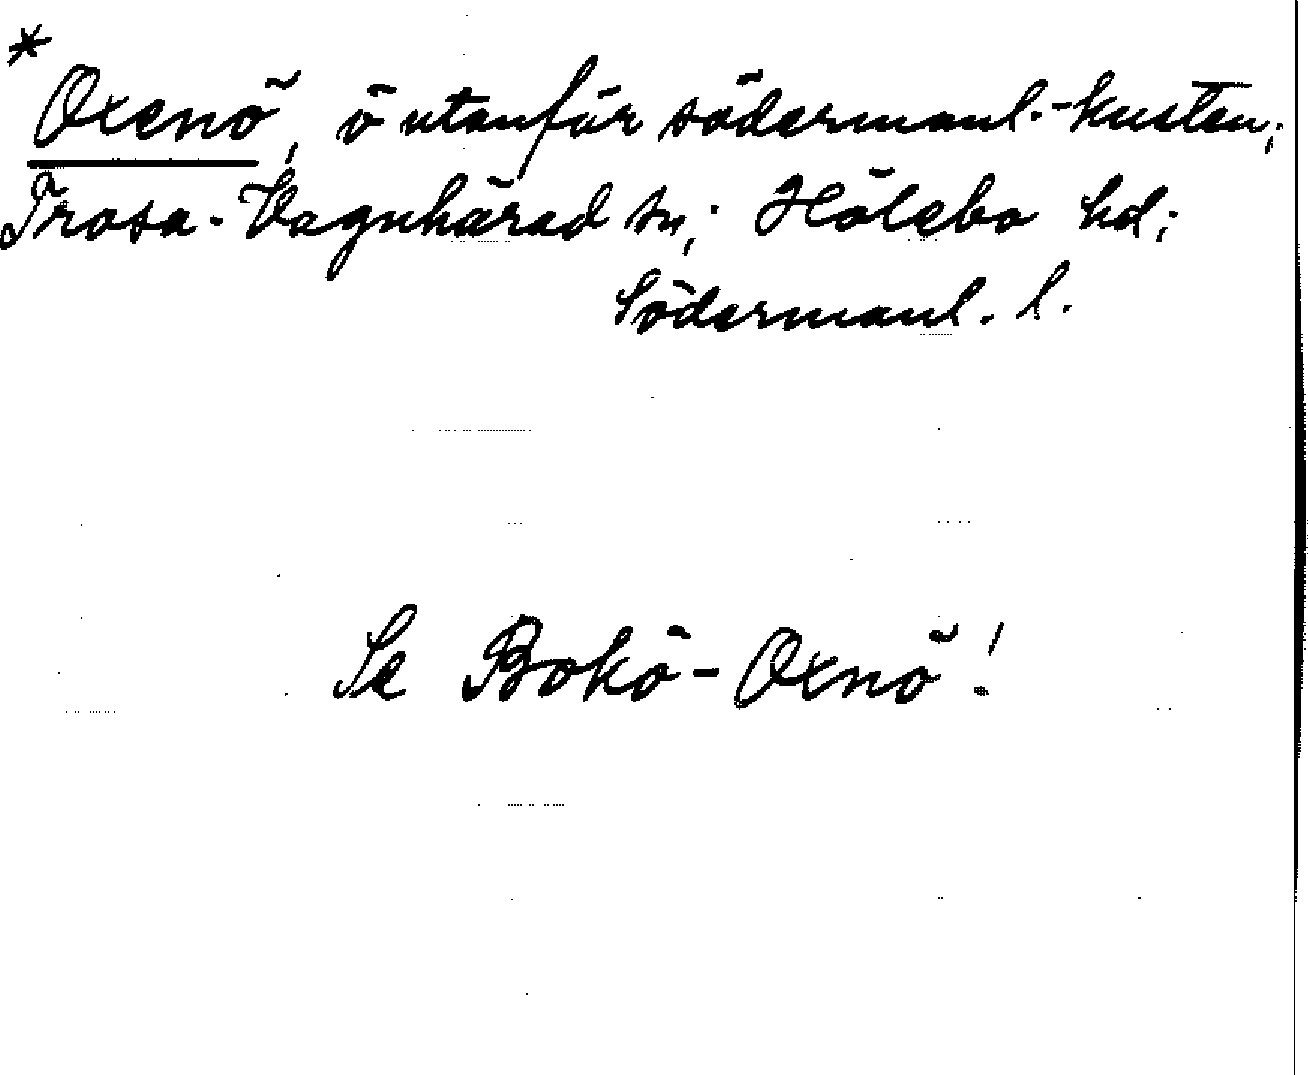 * Oxenö, ö utanför södermanl.-kusten;
Trosa-Vagnhärad sn; Hölebo hd;
Södermanl. l.
Se Bokö-Oxnö!